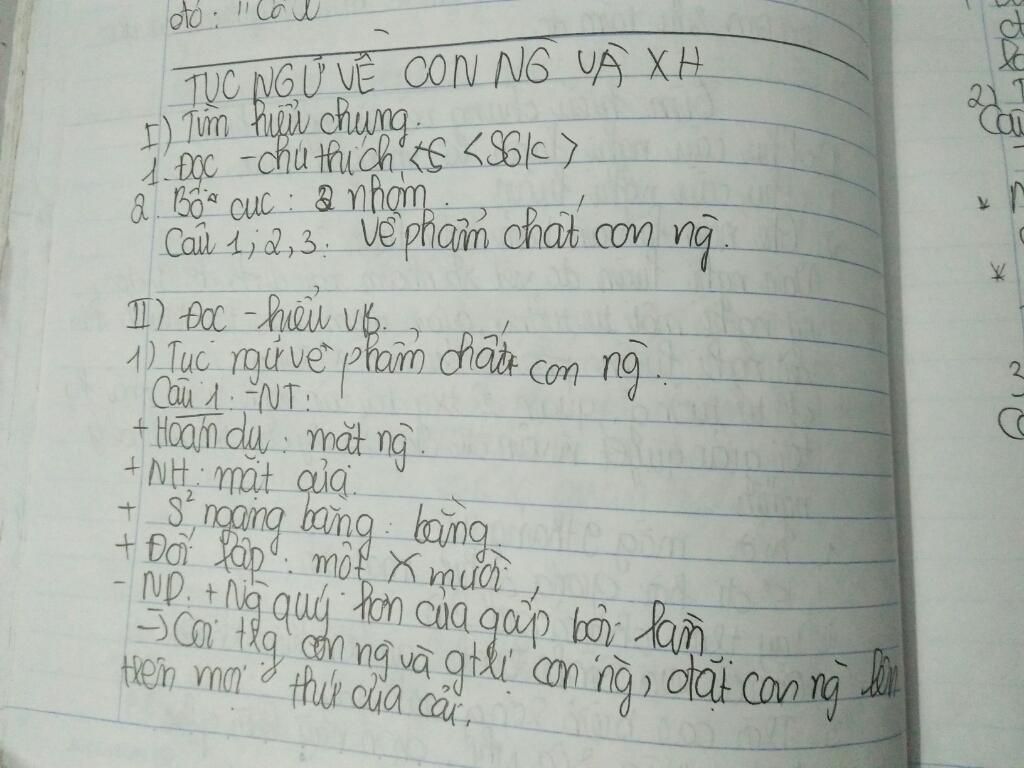 đó: "Câu
TỤC NGỮ VỀ CON NG VÀ XH
I) Tìm hiểu chung.
1. Đọc - chú thích <SGK>
2. Bố cục: 2 nhóm.
Câu 1, 2, 3. Về phẩm chất con ng.
II) Đọc - hiểu VB.
1) Tục ngữ về phẩm chất con ng.
Câu 1. - NT:
+ Hoán dụ: mặt ng.
+ NH: mặt của.
+ S² ngang bằng: bằng.
+ Đối lập: một X mười,
- ND. + Ng quý hơn của gấp bội lần
→ Coi trg con ng và gtrị con ng, đặt con ng lên
trên mọi thứ của cải.
2)
Câu
*
*
3